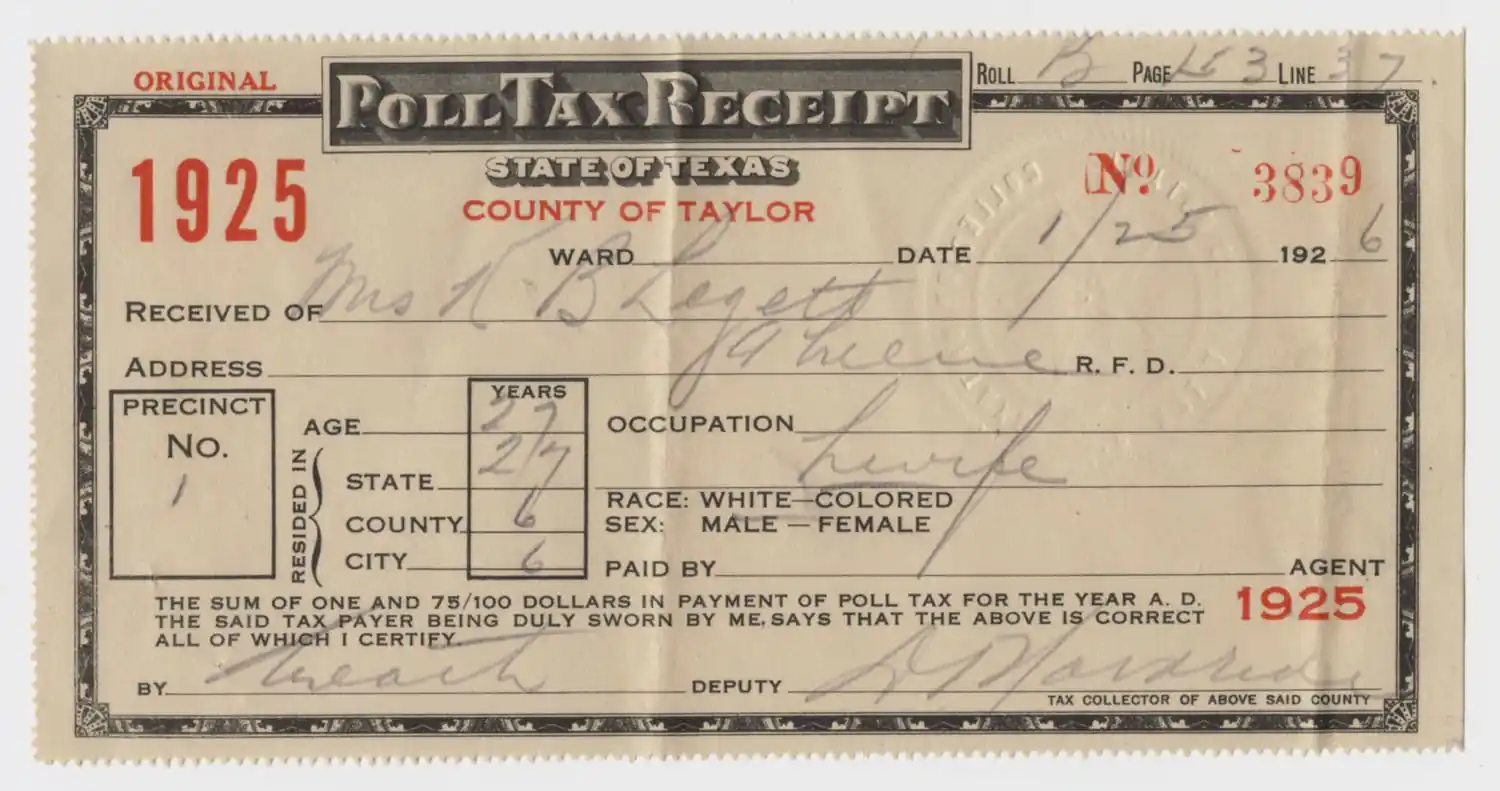 ORIGINAL
POLL TAX RECEIPT
ROLL B PAGE 53 LINE 37
1925
STATE OF TEXAS
COUNTY OF TAYLOR
No. 3839
WARD DATE 1/25 1926
RECEIVED OF Mrs K B Legett
ADDRESS Abilene R. F. D.
PRECINCT
No.
1
YEARS
RESIDED IN
AGE 27
STATE 27
COUNTY 6
CITY 6
OCCUPATION
hwife
RACE: WHITE—COLORED
SEX: MALE — FEMALE
PAID BY AGENT
THE SUM OF ONE AND 75/100 DOLLARS IN PAYMENT OF POLL TAX FOR THE YEAR A. D. 1925
THE SAID TAX PAYER BEING DULY SWORN BY ME, SAYS THAT THE ABOVE IS CORRECT
ALL OF WHICH I CERTIFY.
BY DEPUTY
TAX COLLECTOR OF ABOVE SAID COUNTY